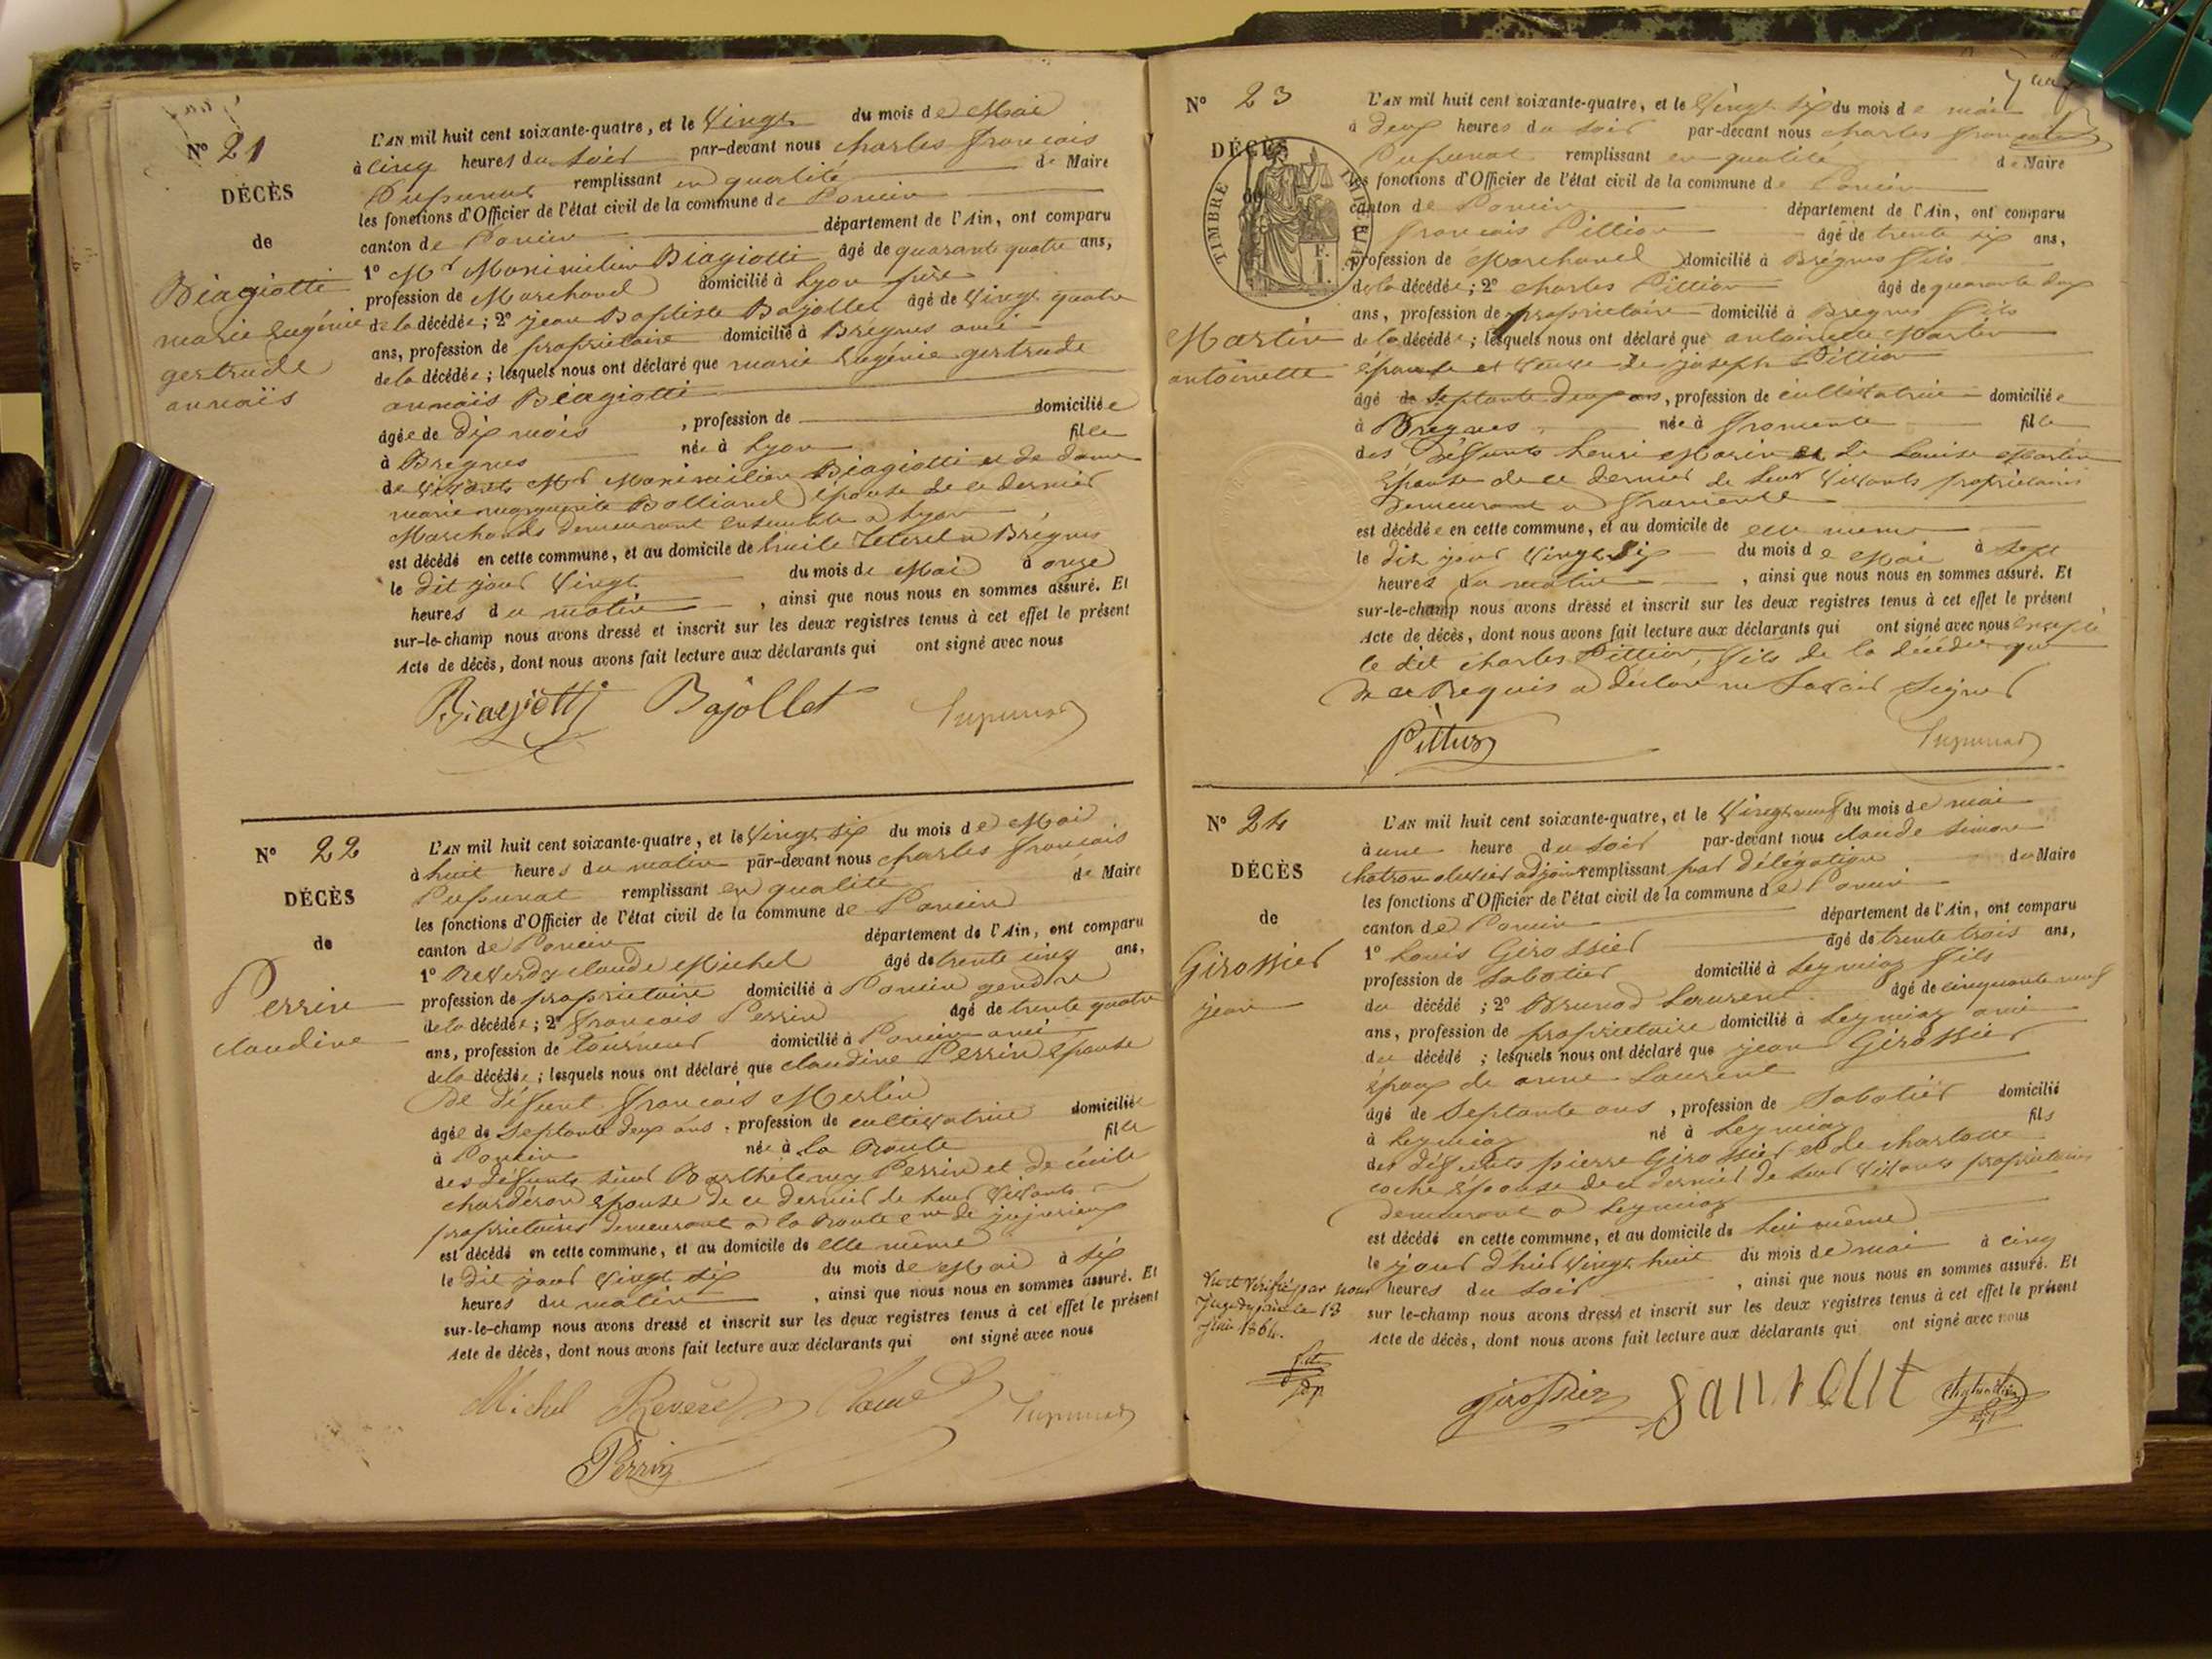 N° 21
DÉCÈS
de
Biagiotti
marie eugénie
gertrude
annaïs
L'AN mil huit cent soixante-quatre, et le Vingt du mois de Mai
à cinq heures du soir par-devant nous charles francois
Pupunat remplissant en qualité de Maire
les fonctions d'Officier de l'état civil de la commune de Poncin
canton de Poncin département de l'Ain, ont comparu
1° Mr Maximilien Biagiotti âgé de quarante quatre ans,
profession de Marchand domicilié à Lyon père
de la décédée; 2° jean Baptiste Bajollet âgé de Vingt quatre
ans, profession de propriétaire domicilié à Brégnes ami
de la décédée; lesquels nous ont déclaré que marie Eugénie gertrude
annaïs Biagiotti
âgée de dix mois , profession de domiciliée
à Bregnes née à Lyon fille
de Vivants Mr Maximilien Biagiotti et de dame
marie marguerite Bolliand épouse de ce dernier
Marchands demeurant ensemble a Lyon
est décédé en cette commune, et au domicile de a Brégnes
le dit jour Vingt du mois de Mai à onze
heures du matin , ainsi que nous nous en sommes assuré. Et
sur-le-champ nous avons dressé et inscrit sur les deux registres tenus à cet effet le présent
Acte de décès, dont nous avons fait lecture aux déclarants qui ont signé avec nous
Biagiotti Bajollet Pupunat
N° 22
DÉCÈS
de
Perrin
claudine
L'AN mil huit cent soixante-quatre, et le Vingt six du mois de Mai
à huit heures du matin par-devant nous charles francois
Pupunat remplissant en qualité de Maire
les fonctions d'Officier de l'état civil de la commune de Poncin
canton de Poncin département de l'Ain, ont comparu
1° Reverdy claude Michel âgé de trente cinq ans,
profession de propriétaire domicilié à Poncin gendre
de la décédée; 2° francois Perrin âgé de trente quatre
ans, profession de tourneur domicilié à Poncin ami
de la décédée; lesquels nous ont déclaré que claudine Perrin épouse
De défunt francois Merlin
âgée de Septante deux ans , profession de cultivatrice domiciliée
à Poncin née à la Route fille
des défunts sieur Barthélemy Perrin et de cécile
charderon épouse de ce dernier de leur Vivants
propriétaires demeurant a la Route cne de jujurieux
est décédé en cette commune, et au domicile de elle même
le dit jour Vingt six du mois de Mai à six
heures du matin , ainsi que nous nous en sommes assuré. Et
sur-le-champ nous avons dressé et inscrit sur les deux registres tenus à cet effet le présent
Acte de décès, dont nous avons fait lecture aux déclarants qui ont signé avec nous
Michel Reverdy Claude Pupunat
Perrin
N° 23
DÉCÈS
de
TIMBRE IMPÉRIAL
Martin
antoinette
L'AN mil huit cent soixante-quatre, et le Vingt six du mois de mai
à deux heures du soir par-devant nous charles francois
Pupunat remplissant en qualité de Maire
les fonctions d'Officier de l'état civil de la commune de Poncin
canton de Poncin département de l'Ain, ont comparu
1° francois Pittion âgé de trente six ans,
profession de Marchand domicilié à Brégnes fils
de la décédée; 2° charles Pittion âgé de quarante deux
ans, profession de propriétaire domicilié à Bregnes fils
de la décédée; lesquels nous ont déclaré que antoinette Martin
épouse et Veuve de joseph Pittion
âgé de Septante deux ans, profession de cultivatrice domiciliée
à Bregnes née à fromente fille
des défunts henri Marin et de Louise Martin
épouse de ce dernier de leur Vivants propriétaires
demeurant a fromente
est décédée en cette commune, et au domicile de elle meme
le dit jour Vingt six du mois de Mai à sept
heures du matin , ainsi que nous nous en sommes assuré. Et
sur-le-champ nous avons dressé et inscrit sur les deux registres tenus à cet effet le présent
Acte de décès, dont nous avons fait lecture aux déclarants qui ont signé avec nous Excepté
le dit charles Pittion, fils de la décédée qui
de ce Requis a déclaré ne Savoir Signer
Pittion Pupunat
N° 24
DÉCÈS
de
Girossier
jean
L'AN mil huit cent soixante-quatre, et le Vingt neuf du mois de mai
à une heure du soir par-devant nous claude simon
chatron olivier adjoint remplissant par délégation du Maire
les fonctions d'Officier de l'état civil de la commune de Poncin
canton de Poncin département de l'Ain, ont comparu
1° Louis Girossier âgé de trente trois ans,
profession de Sabotier domicilié à Leymiaz fils
du décédé ; 2° Brunod Laurent âgé de cinquante neuf
ans, profession de propriétaire domicilié à Leymiaz ami
du décédé ; lesquels nous ont déclaré que jean Girossier
époux de anne Laurent
âgé de Septante ans , profession de Sabotier domicilié
à Leymiaz né à Leymiaz fils
des défunts pierre Girossier et de charlotte
coche épouse de ce dernier de leur Vivants propriétaires
demeurant a Leymiaz
est décédé en cette commune, et au domicile de lui même
le jour d'hier Vingt huit du mois de mai à cinq
heures du soir , ainsi que nous nous en sommes assuré. Et
sur le-champ nous avons dressé et inscrit sur les deux registres tenus à cet effet le présent
Acte de décès, dont nous avons fait lecture aux déclarants qui ont signé avec nous
Vu et vérifié par nous
juge de paix le 13
juin 1864.
Girossier